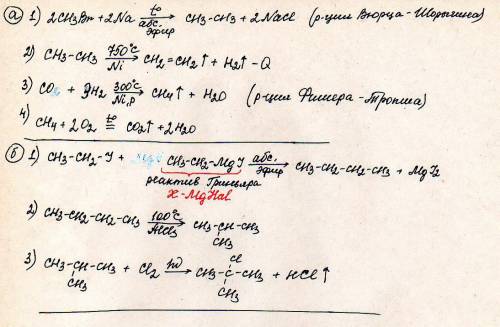 а) 1) 2CH3Br + 2Na t° абс. эфир → CH3-CH3 + 2NaCl (р-ция Вюрца-Шорыгина)
2) CH3-CH3 750°C Ni → CH2=CH2↑ + H2↑ - Q
3) CO2 + 3H2 300°C Ni, p → CH4↑ + H2O (р-ция Фишера-Тропша)
4) CH4 + 2O2 t° = CO2↑ + 2H2O
б) 1) CH3-CH2-I + CH3-CH2-MgI абс. эфир → CH3-CH2-CH2-CH3 + MgI2
реактив Гриньяра
X-MgHal
2) CH3-CH2-CH2-CH3 100°C AlCl3 → CH3-CH-CH3
CH3
Cl
3) CH3-CH-CH3 + Cl2 hν → CH3-C-CH3 + HCl↑
CH3 CH3